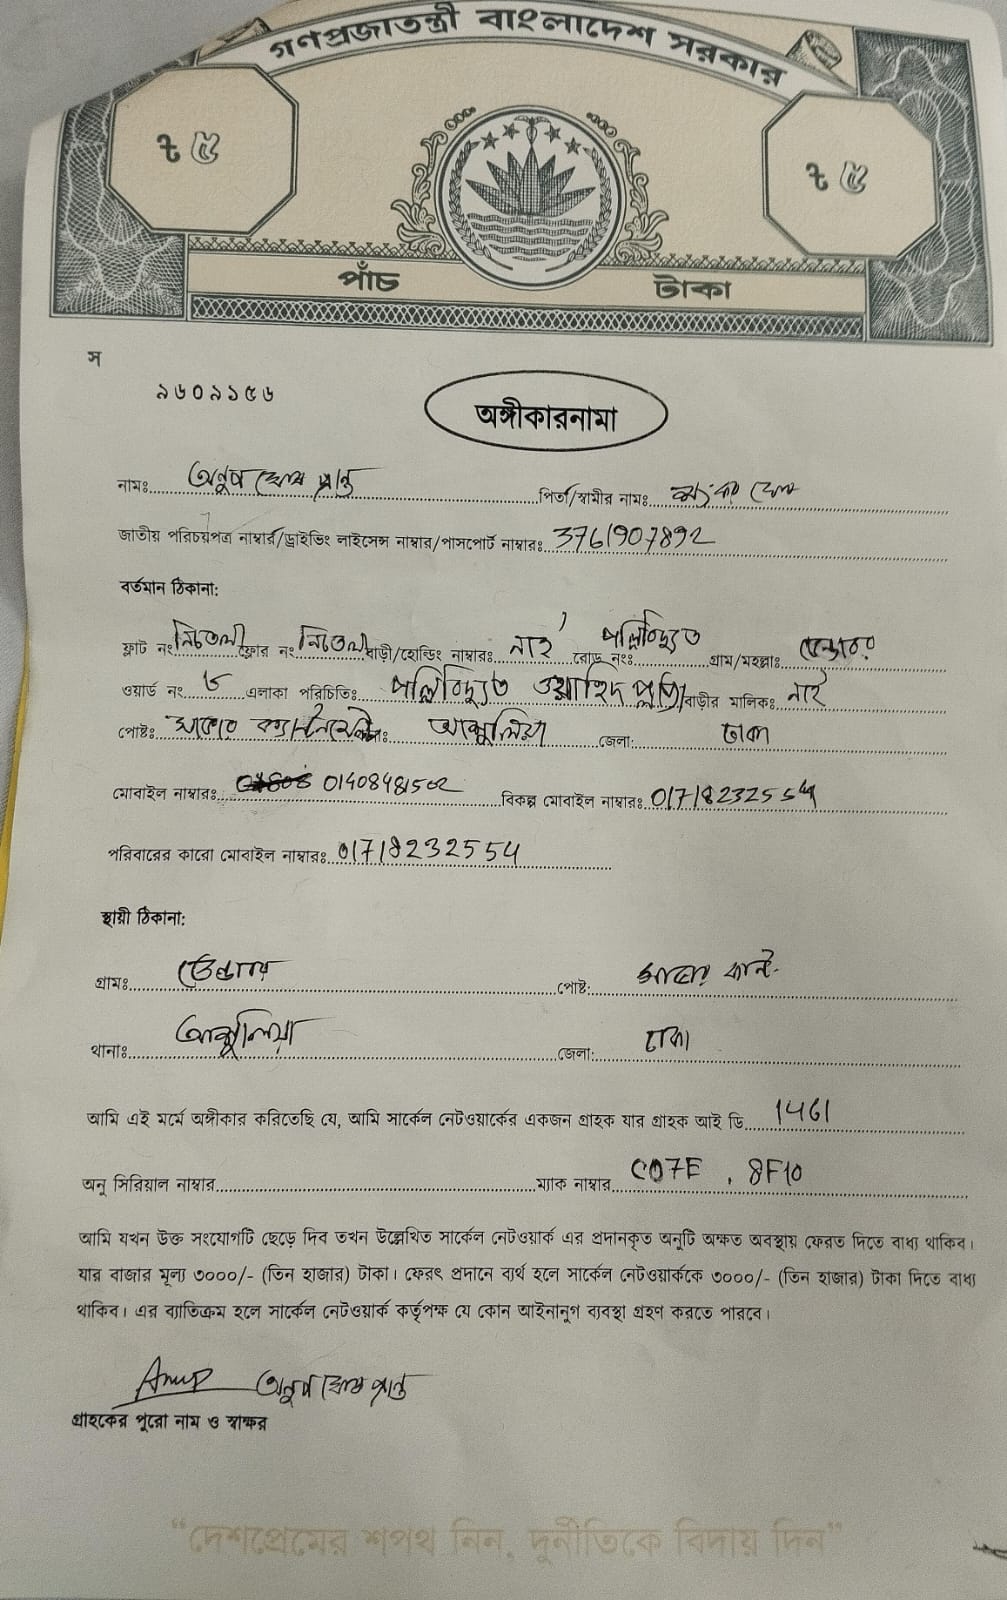 গণপ্রজাতন্ত্রী বাংলাদেশ সরকার
৳ ৫ ৳ ৫
পাঁচ টাকা
স
৯৬০৯১৫৬
অঙ্গীকারনামা
নামঃ অনুপ ঘোষ প্রান্ত পিতা/স্বামীর নামঃ শংকর ঘোষ
জাতীয় পরিচয়পত্র নাম্বার/ড্রাইভিং লাইসেন্স নাম্বার/পাসপোর্ট নাম্বারঃ 3761907892
বর্তমান ঠিকানা:
ফ্লাট নং নিচতলা ফ্লোর নং নিচতলা বাড়ী/হোল্ডিং নাম্বারঃ নাই রোড নংঃ পল্লিবিদ্যুত গ্রাম/মহল্লাঃ
ওয়ার্ড নং ৮ এলাকা পরিচিতিঃ পল্লিবিদ্যুত ওয়াহিদ বাড়ীর মালিকঃ নাই
পোষ্টঃ সাভার ক্যান্টনমেন্ট আশুলিয়া জেলা: ঢাকা
মোবাইল নাম্বারঃ 01408481502 বিকল্প মোবাইল নাম্বারঃ 01718232554
পরিবারের কারো মোবাইল নাম্বারঃ 01718232554
স্থায়ী ঠিকানা:
গ্রামঃ ডেন্ডাবর পোষ্ট: সাভার ক্যান্ট.
থানাঃ আশুলিয়া জেলা: ঢাকা
আমি এই মর্মে অঙ্গীকার করিতেছি যে, আমি সার্কেল নেটওয়ার্কের একজন গ্রাহক যার গ্রাহক আই ডি 1461
অনু সিরিয়াল নাম্বার ম্যাক নাম্বার C07E . 8F10
আমি যখন উক্ত সংযোগটি ছেড়ে দিব তখন উল্লেখিত সার্কেল নেটওয়ার্ক এর প্রদানকৃত অনুটি অক্ষত অবস্থায় ফেরত দিতে বাধ্য থাকিব।
যার বাজার মূল্য ৩০০০/- (তিন হাজার) টাকা। ফেরৎ প্রদানে ব্যর্থ হলে সার্কেল নেটওয়ার্ককে ৩০০০/- (তিন হাজার) টাকা দিতে বাধ্য
থাকিব। এর ব্যাতিক্রম হলে সার্কেল নেটওয়ার্ক কর্তৃপক্ষ যে কোন আইনানুগ ব্যবস্থা গ্রহণ করতে পারবে।
Anup অনুপ ঘোষ প্রান্ত
গ্রাহকের পুরো নাম ও স্বাক্ষর
"দেশপ্রেমের শপথ নিন, দুর্নীতিকে বিদায় দিন"